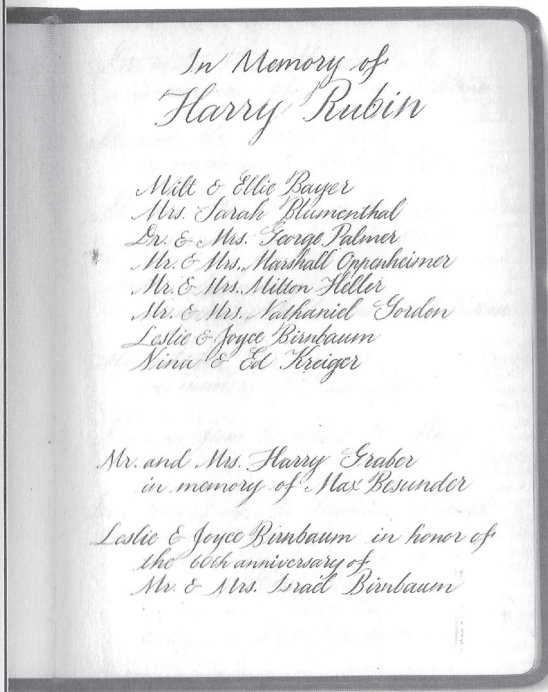 In Memory of
Harry Rubin
Milt & Ellie Bayer
Mrs. Sarah Blumenthal
Dr. & Mrs. George Palmer
Mr. & Mrs. Marshall Oppenheimer
Mr. & Mrs. Milton Heller
Mr. & Mrs. Nathaniel Gordon
Leslie & Joyce Birnbaum
Nina & Ed Kreiger
Mr. and Mrs. Harry Graber
in memory of Max Besunder
Leslie & Joyce Birnbaum in honor of
the 60th anniversary of
Mr. & Mrs. Israel Birnbaum